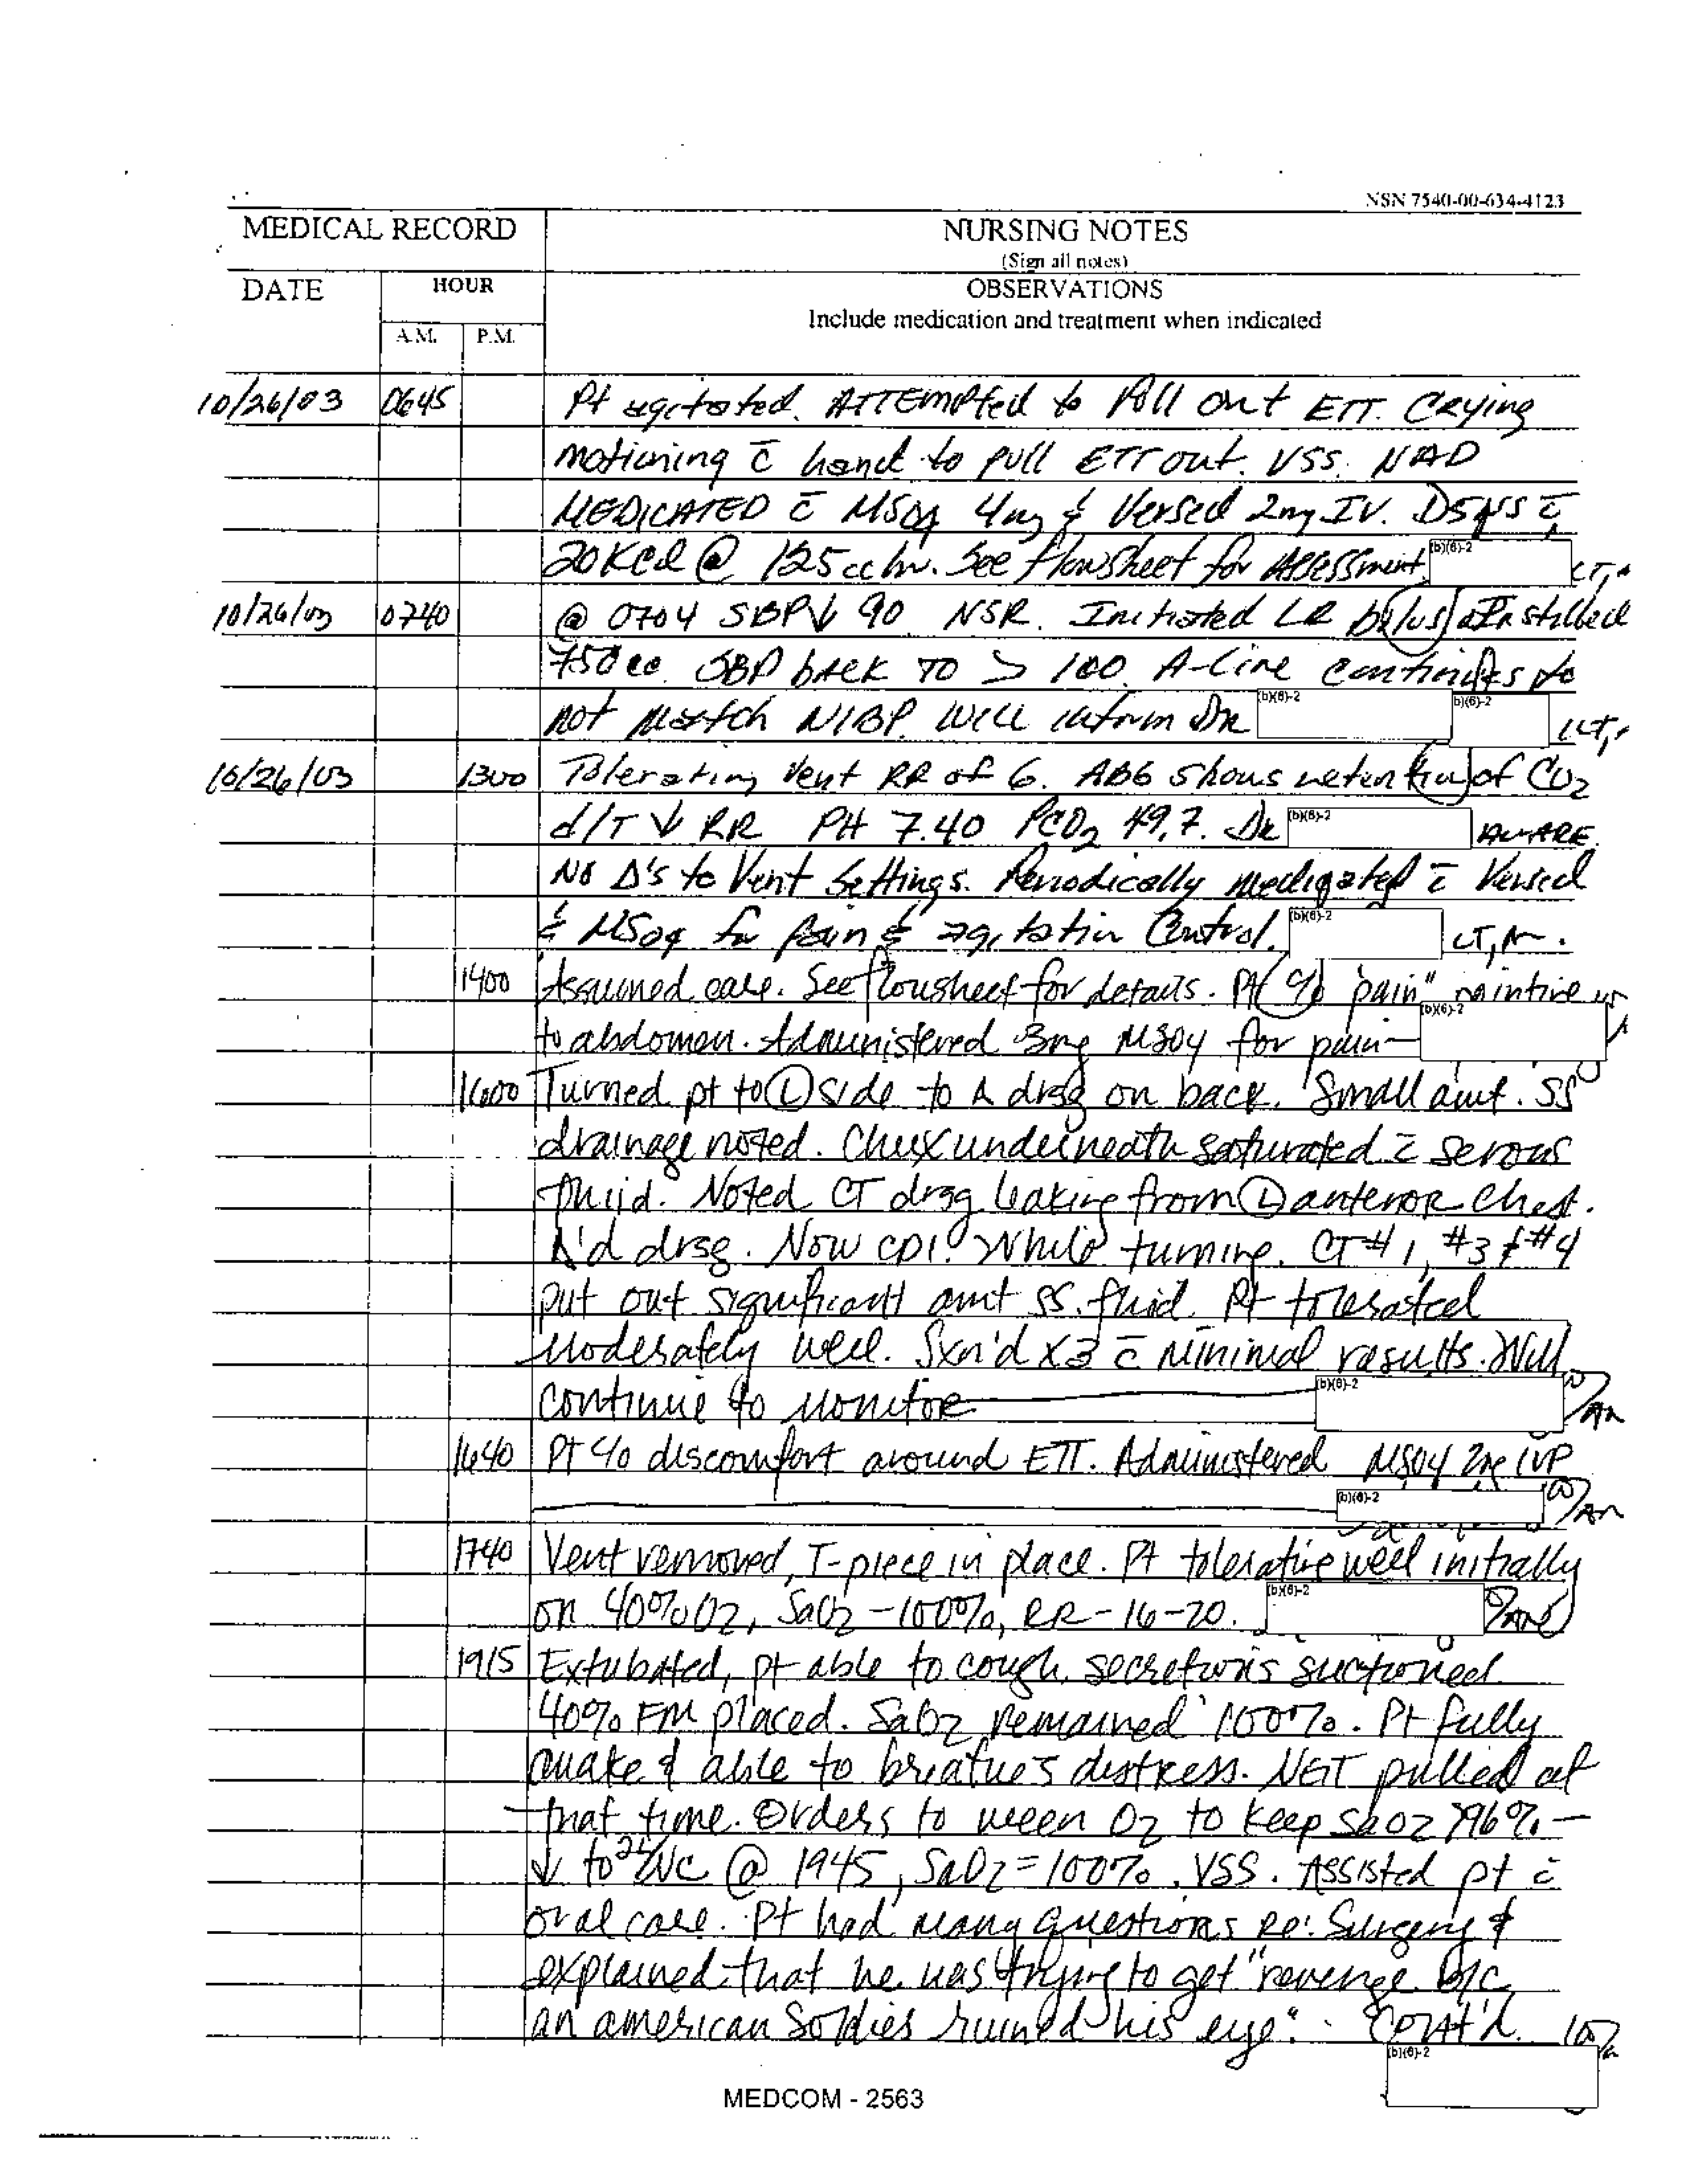 NSN 7540-00-634-4123
MEDICAL RECORD
NURSING NOTES
(Sign all notes)
DATE
HOUR
OBSERVATIONS
Include medication and treatment when indicated
A.M.
P.M.
10/26/03 0645 Pt agitated. ATTEMPTed to Pull out ETT. Crying
motioning c̄ hand to pull ETT out. VSS. NAD
MEDICATED c̄ MSO4 4mg & Versed 2mg IV. D5NS c̄
20KCl @ 125cc/hr. See flowsheet for Assessment. (b)(6)-2 LT,
10/26/03 0740 @ 0704 SBP↓ 90 NSR. Initiated LR bolus Instilled
750cc. SBP back TO > 100. A-Line continues to
not match NIBP. Will inform Dr (b)(6)-2 (b)(6)-2 LT,
10/26/03 1300 Tolerating Vent RR of 6. ABG shows retention of CO2
d/T ↓ RR PH 7.40 PCO2 49.7. Dr (b)(6)-2 AWARE.
No Δ's to Vent Settings. Periodically medicated c̄ Versed
& MSO4 for pain & agitation Control. (b)(6)-2 LT,
1400 Assumed care. See flowsheet for details. Pt c/o "pain" pointing
to abdomen. Administered 3mg MSO4 for pain- (b)(6)-2
1600 Turned pt to Ⓛ side to Δ drsg on back. Small amt. SS
drainage noted. Chux underneath saturated c̄ serous
fluid. Noted CT drsg leaking from Ⓛ anterior Chest.
Δ'd drsg. Now CDI. While turning, CT #1, #3 & #4
put out significant amt SS. fluid. Pt tolerated
Moderately well. Sxn'd x3 c̄ minimal results. Will
continue to Monitor (b)(6)-2
1640 Pt c/o discomfort around ETT. Administered MSO4 2mg IVP
(b)(6)-2
1740 Vent removed, T-piece in place. Pt tolerating well initially
on 40% O2, SaO2-100%, RR-16-20. (b)(6)-2
1915 Extubated, pt able to cough, secretions suctioned
40% FM placed. SaO2 remained 100%. Pt fully
awake & able to breathe s̄ distress. NGT pulled at
that time. Orders to ween O2 to keep SaO2 >96% -
↓ to 2L NC @ 1945, SaO2=100%. VSS. Assisted pt c̄
oral care. Pt had many questions re: Surgery &
explained that he was trying to get "revenge b/c
an american Soldier ruined his eye". Cont'd.
(b)(6)-2
MEDCOM - 2563